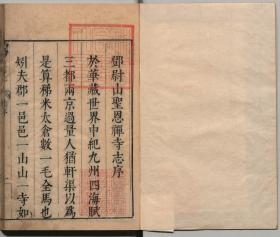 鄧尉山聖恩禪寺志序
於華藏世界中紀九州四海賦
三都兩京過量人猶軒渠以爲
是算稊米太倉數一毛全馬也
矧夫郡一邑邑一山山一寺如